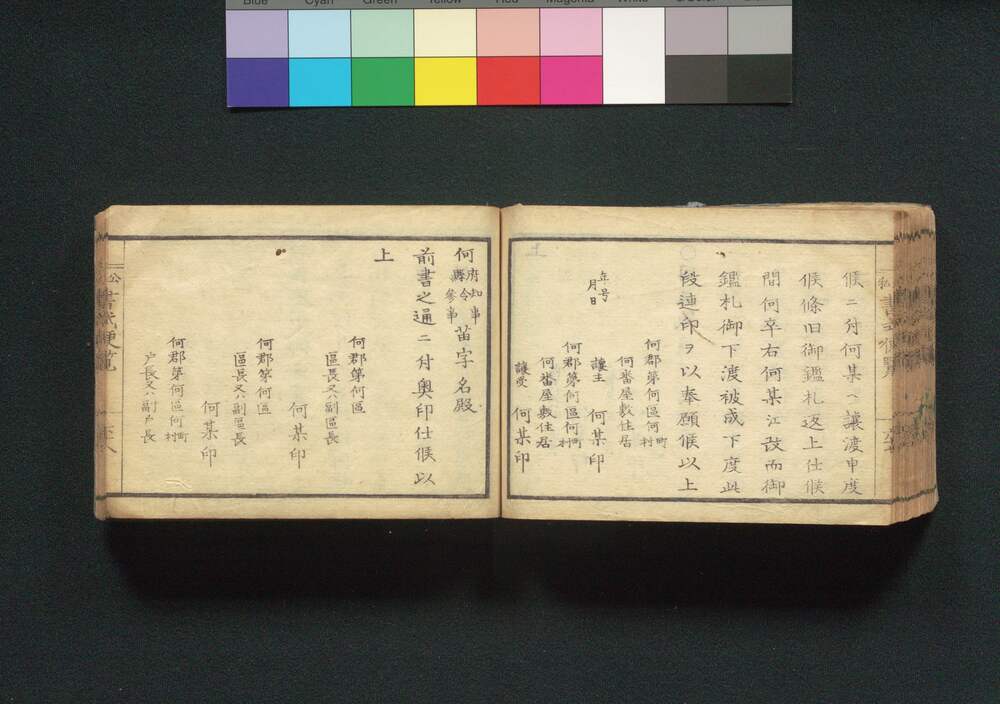 候ニ付何某へ讓渡申度
候條旧御鑑札返上仕候
間何卒右何某江改而御
鑑札御下渡被成下度此
段連印ヲ以奉願候以上
年号
月日
何郡第何區何町村
何番屋敷住居
讓主 何某印
何郡第何區何村
何番屋敷住居
讓受 何某印
何府知事縣令參事苗字名殿
前書之通ニ付奥印仕候以
上
何郡第何區
區長又ハ副區長
何某印
何郡第何區
區長又ハ副區長
何某印
何郡第何區何町村
戸長又ハ副戸長